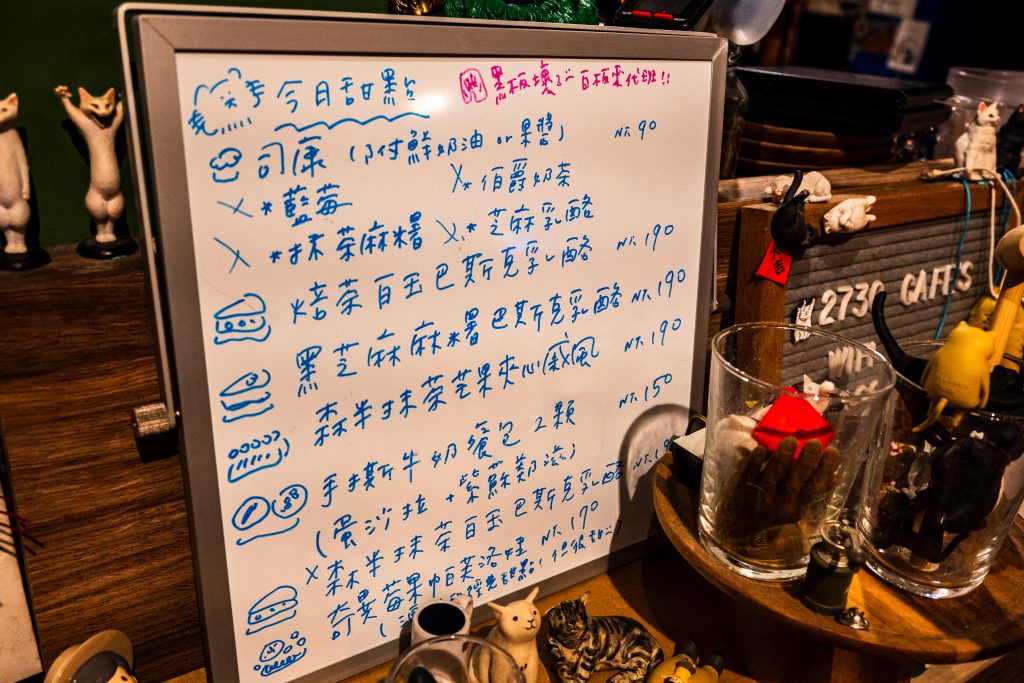 今日甜點
黑板壞了 白板來代班!!
司康 (附鮮奶油 or 果醬) NT. 90
X *藍莓 X *伯爵奶茶
X *抹茶麻糬 X *芝麻乳酪
焙茶白玉巴斯克乳酪 NT. 190
黑芝麻麻糬巴斯克乳酪 NT. 190
森半抹茶芒果夾心戚風 NT. 190
手撕牛奶餐包 2顆 NT. 150
(蛋沙拉 + 紫蘇鄭滋)
X 森半抹茶白玉巴斯克乳酪 NT.
奇異莓果帕芙洛娃 NT. 190
甜點! 但很甜
2730 CAFE'S
WIFI